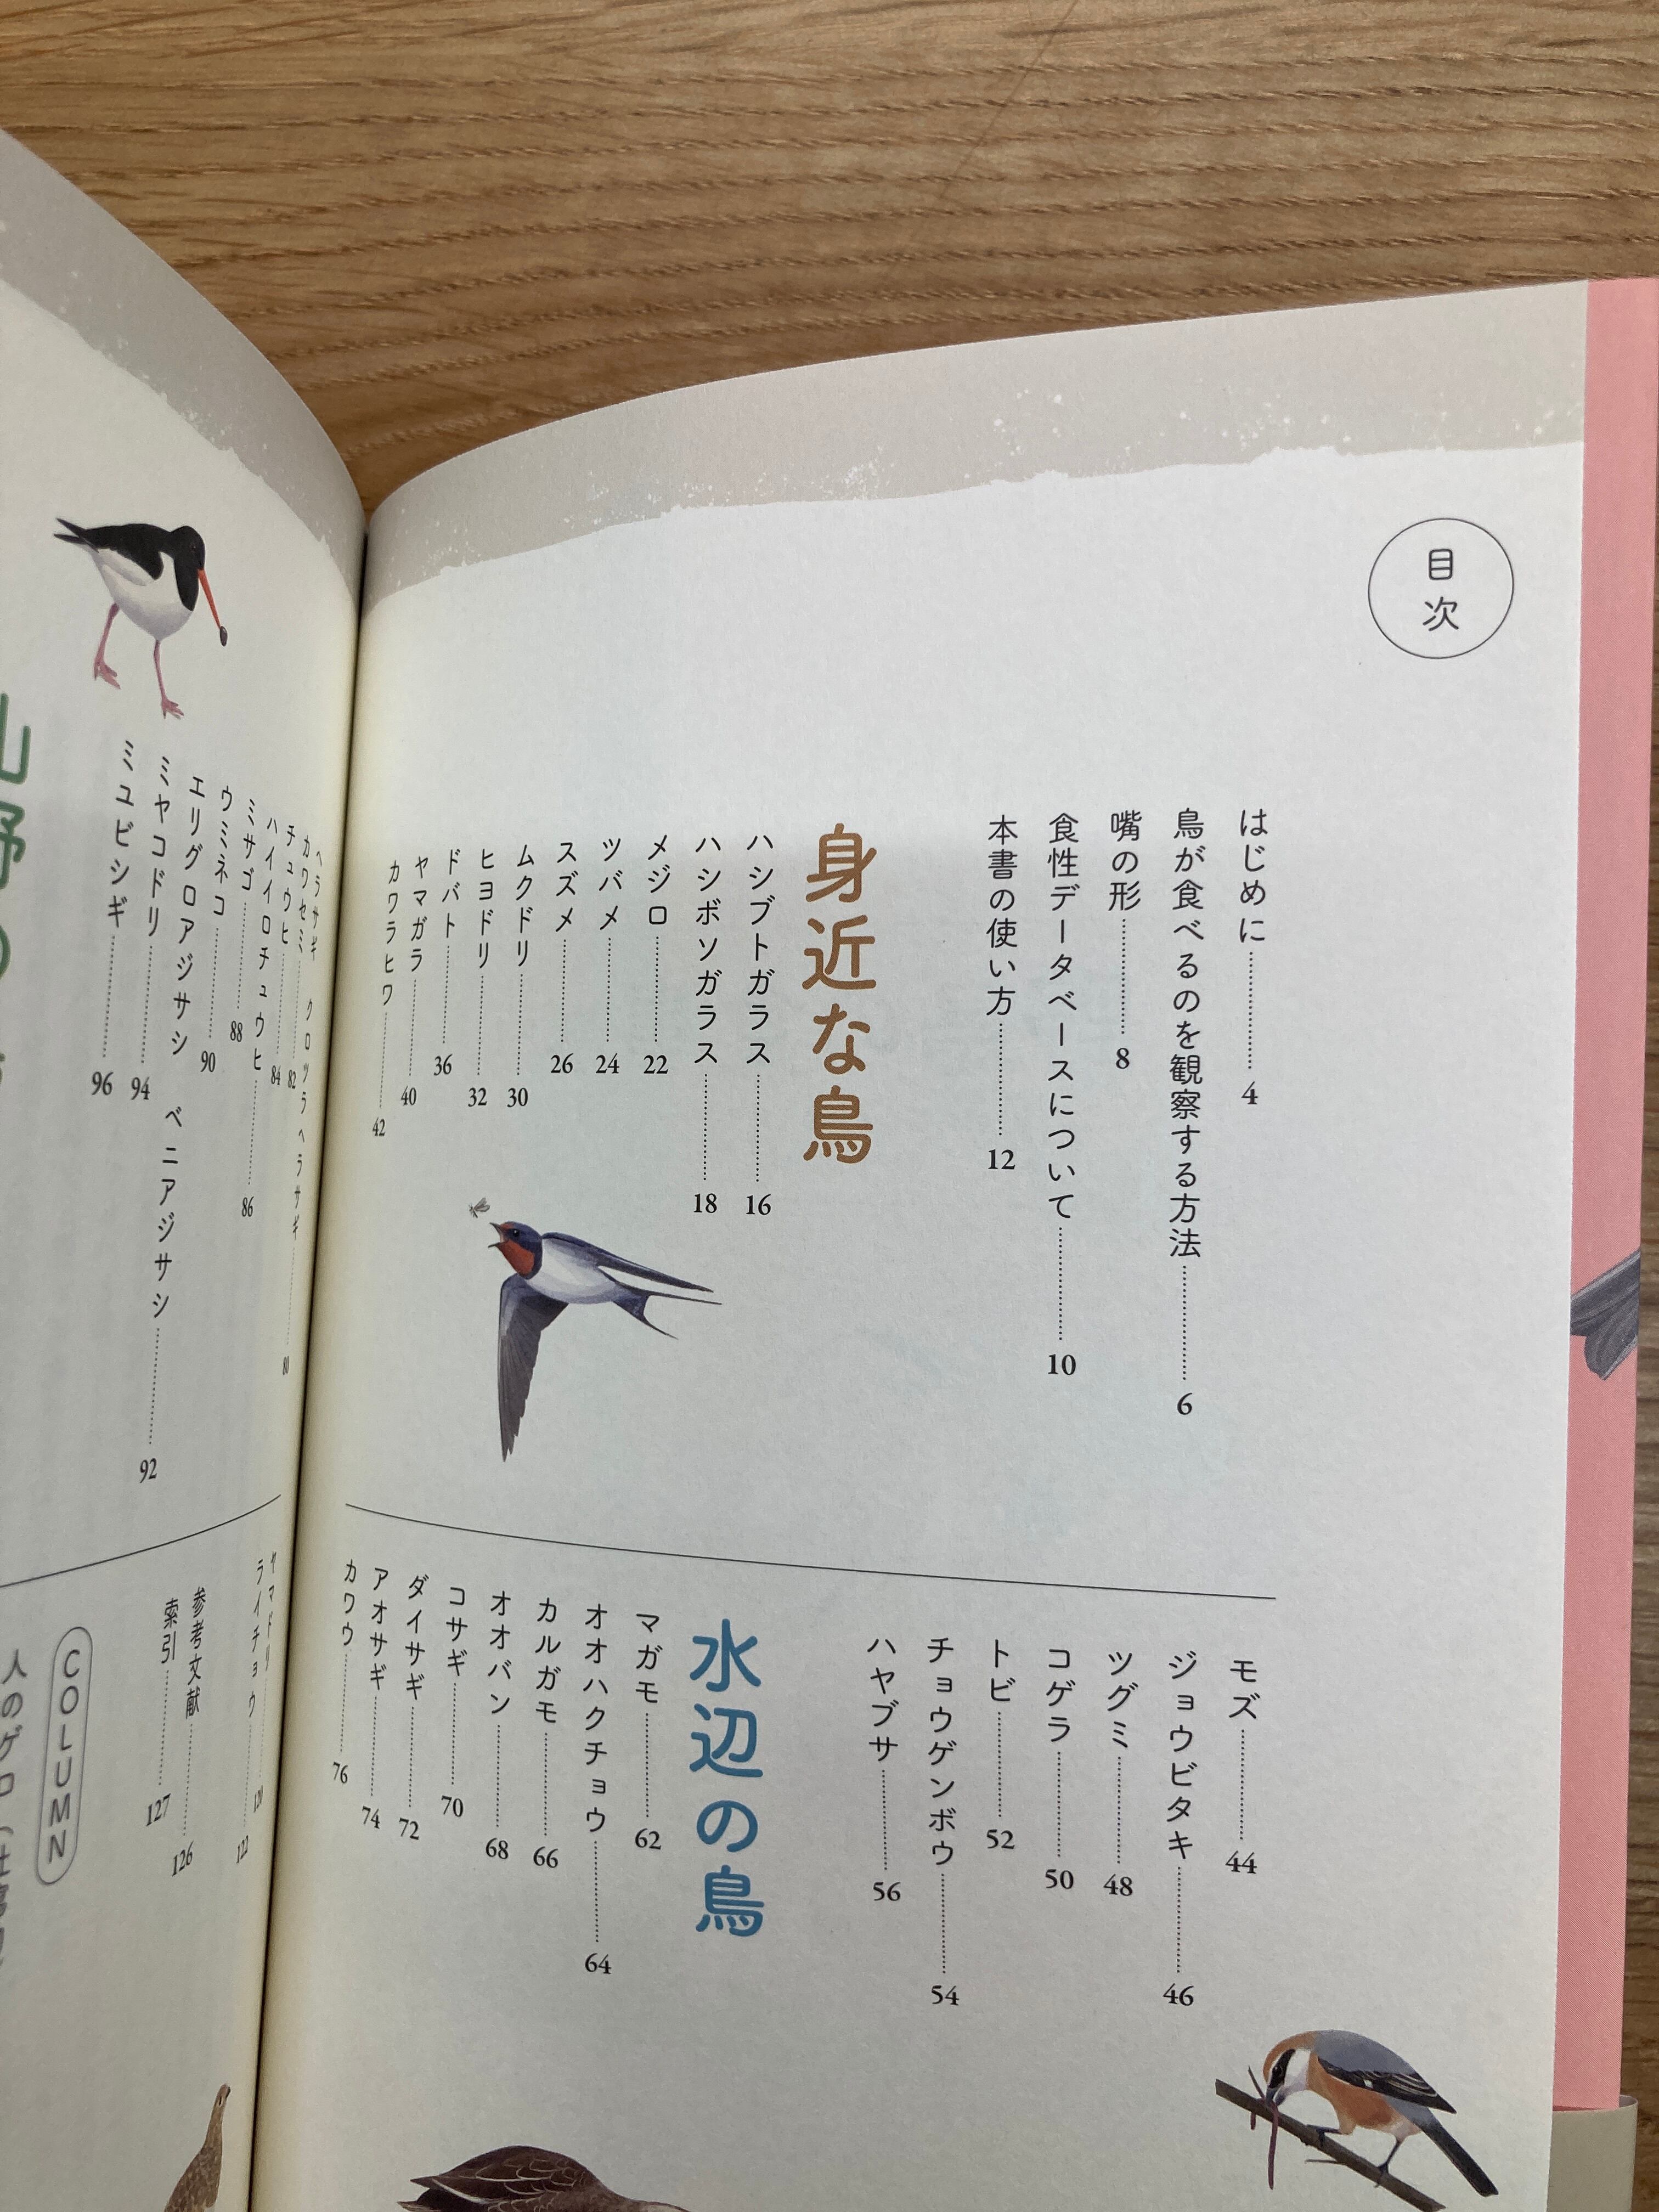 目次
はじめに 4
鳥が食べるのを観察する方法 6
嘴の形 8
食性データベースについて 10
本書の使い方 12
身近な鳥
ハシブトガラス 16
ハシボソガラス 18
メジロ 22
ツバメ 24
スズメ 26
ムクドリ 30
ヒヨドリ 32
ドバト 36
ヤマガラ 40
カワラヒワ 42
モズ 44
ジョウビタキ 46
ツグミ 48
コゲラ 50
トビ 52
チョウゲンボウ 54
ハヤブサ 56
水辺の鳥
マガモ 62
オオハクチョウ 64
カルガモ 66
オオバン 68
コサギ 70
ダイサギ 72
アオサギ 74
カワウ 76
ヘラサギ クロツラヘラサギ 80
カワセミ 82
チュウヒ 84
ハイイロチュウヒ 86
ミサゴ 88
ウミネコ 90
エリグロアジサシ ベニアジサシ 92
ミヤコドリ 94
ミユビシギ 96
山野の
ヤマドリ 120
ライチョウ 122
参考文献 126
索引 127
COLUMN
人のゲロ